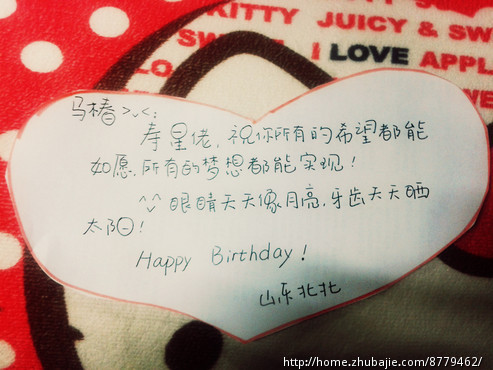 KITTY JUICY & SW
SWEE
I LOVE APPL
LO
马椿>_<:
寿星佬,祝你所有的希望都能
如愿,所有的梦想都能实现!
^_^眼睛天天像月亮,牙齿天天晒
太阳!
Happy Birthday!
山东北北
http://home.zhubajie.com/8779462/